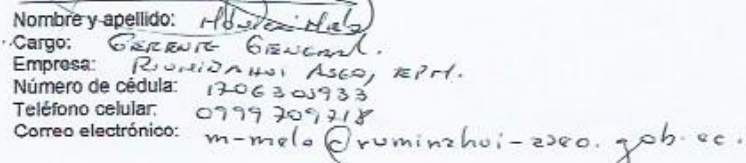 Nombre y apellido: Melo
Cargo: GERENTE GENERAL.
Empresa: RUMIÑAHUI ASEO, EPM.
Número de cédula: 1706303933
Teléfono celular: 0999709718
Correo electrónico: m-melo@ruminahui-aseo.gob.ec.